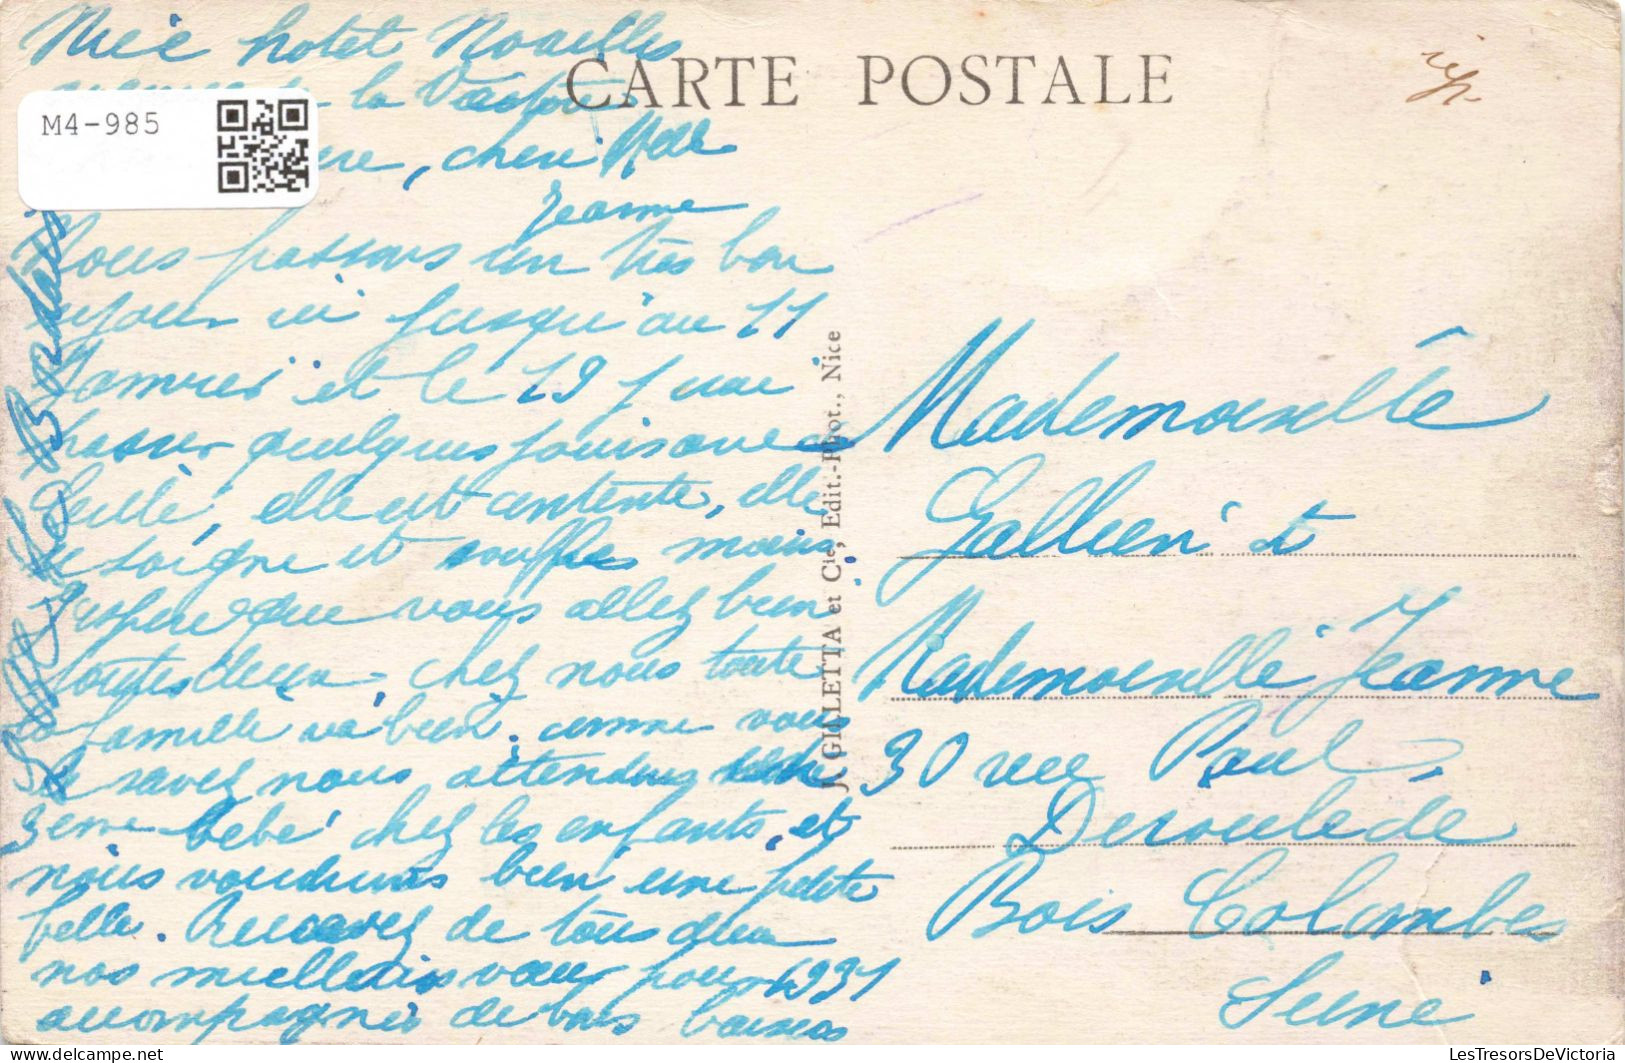 Nice hotel Noailles
avenue de la Victoire
M4-985
chere, cheri Melle
Jeanne
CARTE POSTALE
Nous passons un très bon
sejour ici jusqu'au 11
Janvier et le 19 j'irai
passer quelques jours avec
elle est contente, elle
se soigne et souffre moins.
J'espere que vous allez bien
toutes deux. chez nous toute
la famille va bien. comme vous
le savez nous attendons
3eme bébé chez les enfants, et
nous voudrions bien une petite
belle. Recevez de tous deux
nos meilleurs vœux pour 1931
accompagnés de bons baisers
J. GILLETTA et Cie, Edit.-Phot., Nice
Mademoiselle
Gallien et
Mademoiselle Jeanne
30 rue Paul
Deroulede
Bois Colombes
Seine
LesTresorsDeVictoria
https://www.delcampe.net